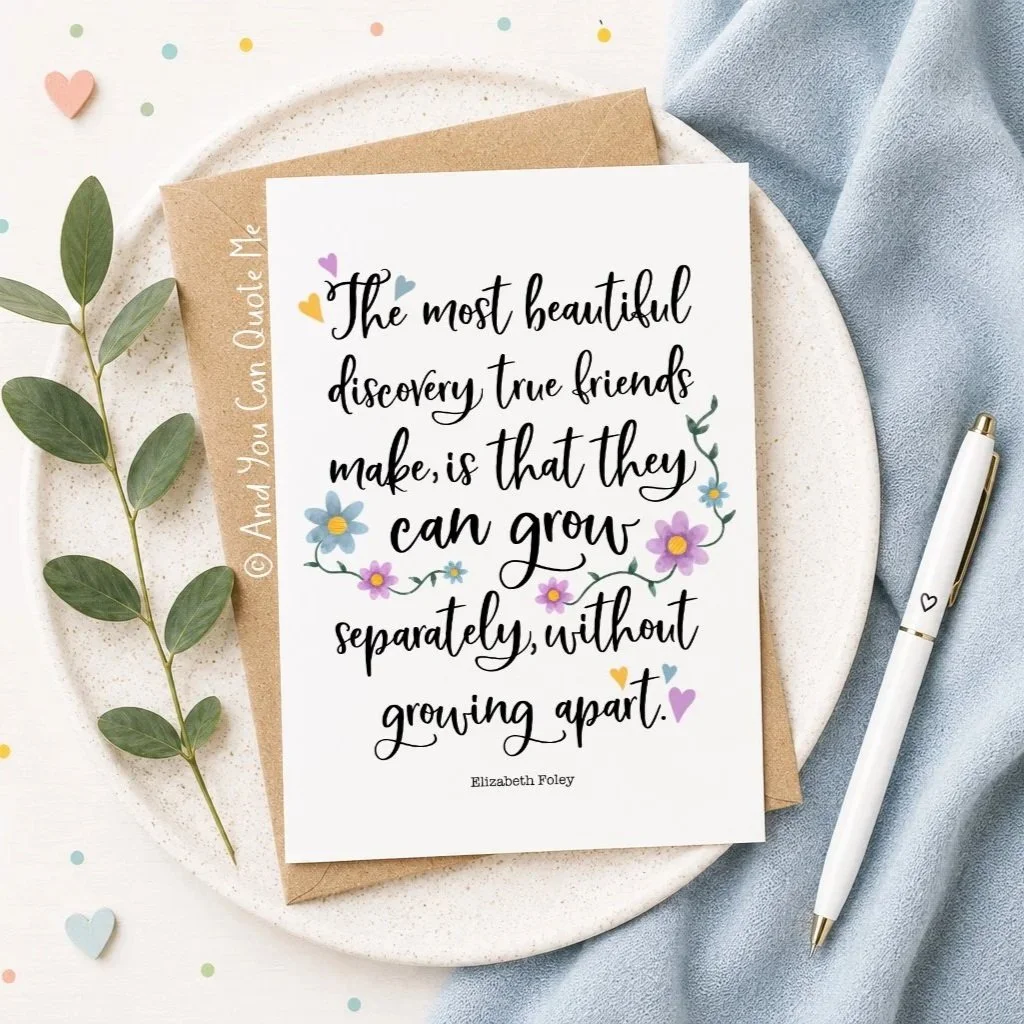 The most beautiful
discovery true friends
make, is that they
can grow
separately, without
growing apart.
Elizabeth Foley
© And You Can Quote Me